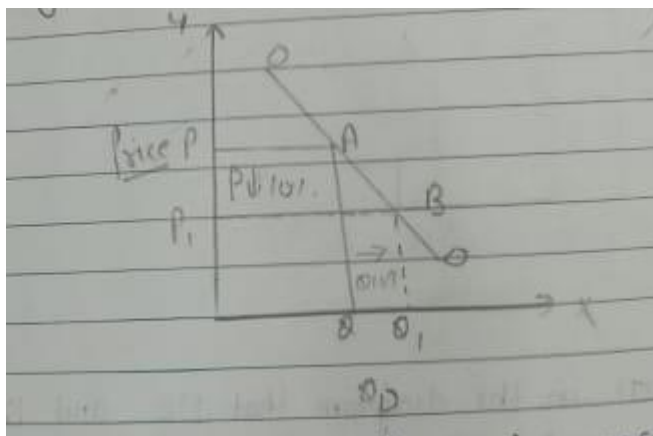 y
D
Price P A
P↓10%.
P₁ B
→ D
Q Q₁ X
QD